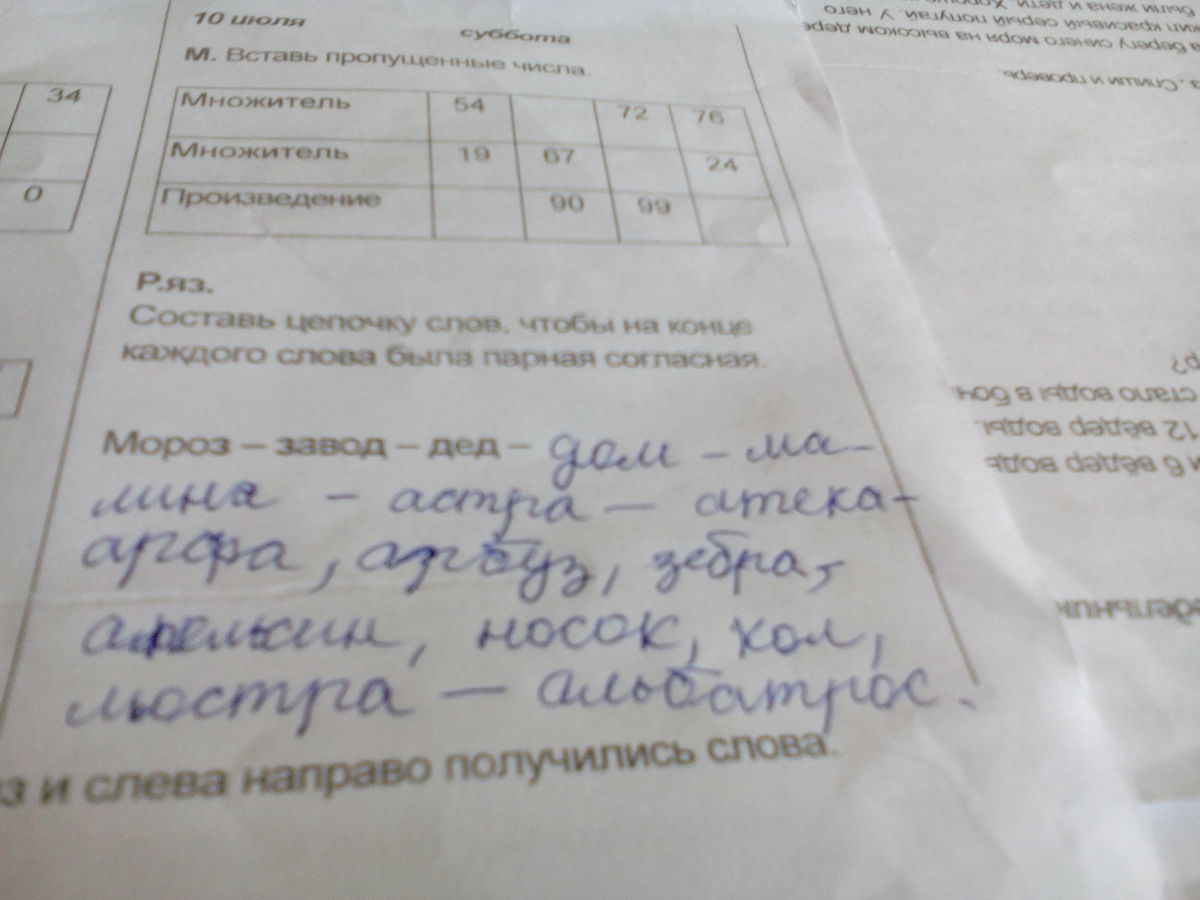 10 июля
суббота
М. Вставь пропущенные числа.
Множитель 54 72 76
Множитель 19 67 24
Произведение 90 99
34
0
Р.яз.
Составь цепочку слов, чтобы на конце
каждого слова была парная согласная.
Мороз – завод – дед – дом – ма-
лина – астра – аптека-
арфа, арбуз, зебра,
апельсин, носок, кол,
люстра – альбатрос.
и слева направо получились слова.
были жена и дети.
красивый серый попугай. У него
берегу синего моря на высоком
Спиши и проверь.
стало воды в
12 вёдер воды.
6 вёдер воды